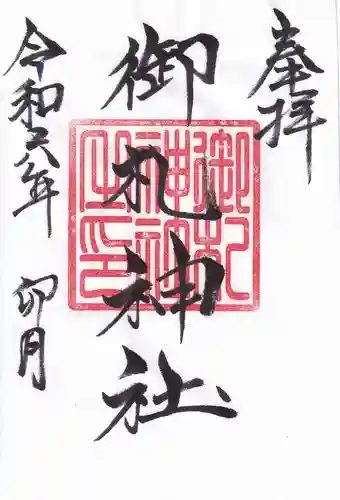 奉拝
御札神社
令和六年
卯月
御札
神社
之印